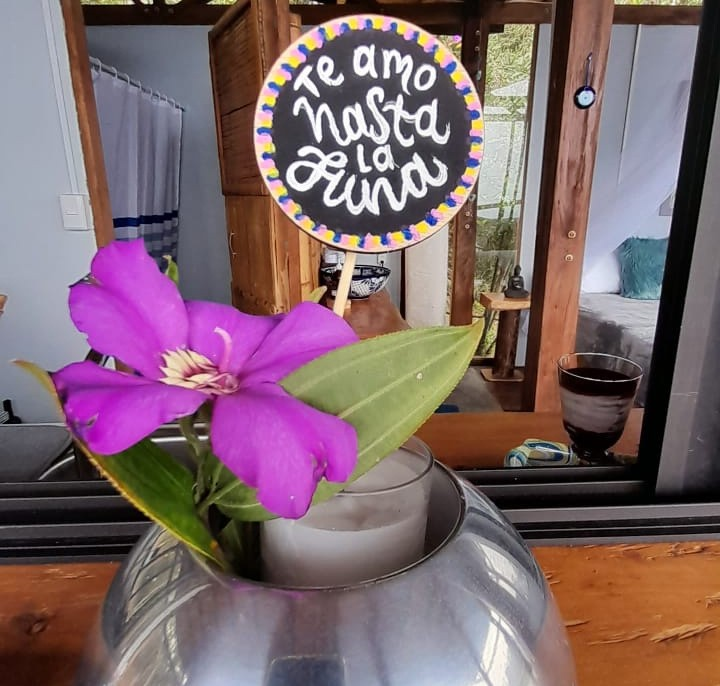 Te amo
hasta
la
Luna